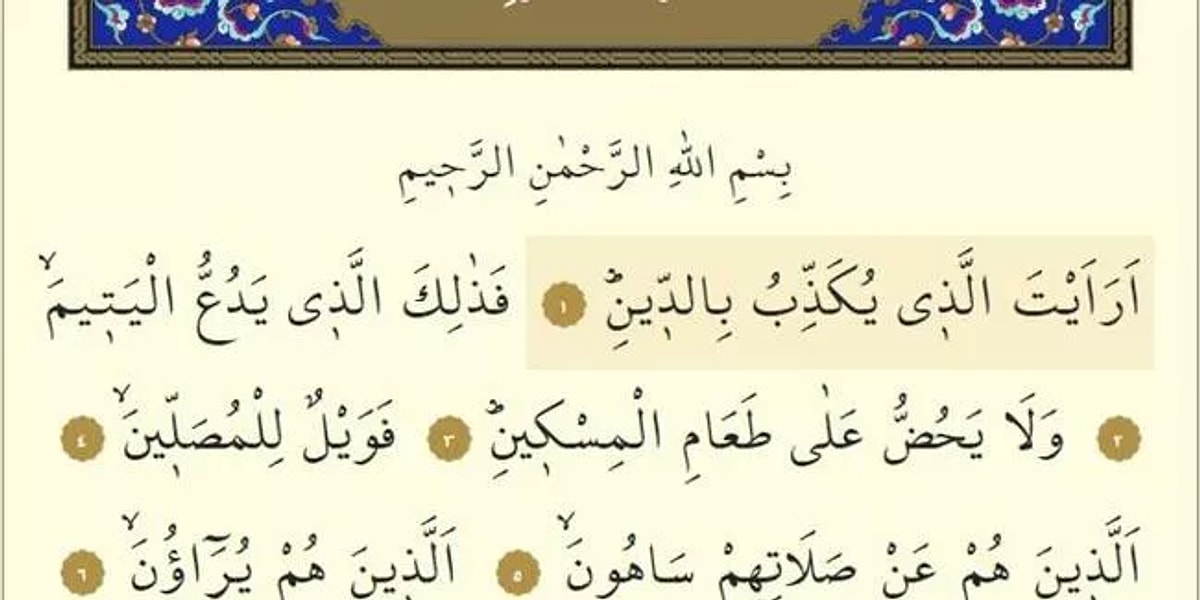 بِسْمِ اللهِ الرَّحْمٰنِ الرَّح۪يمِ
اَرَاَيْتَ الَّذ۪ى يُكَذِّبُ بِالدّ۪ينِۜ ١ فَذٰلِكَ الَّذ۪ى يَدُعُّ الْيَت۪يمَۙ
٢ وَلَا يَحُضُّ عَلٰى طَعَامِ الْمِسْك۪ينِۜ ٣ فَوَيْلٌ لِلْمُصَلّ۪ينَۙ ٤
اَلَّذ۪ينَ هُمْ عَنْ صَلَاتِهِمْ سَاهُونَۙ ٥ اَلَّذ۪ينَ هُمْ يُرَٓاؤُ۫نَۙ ٦